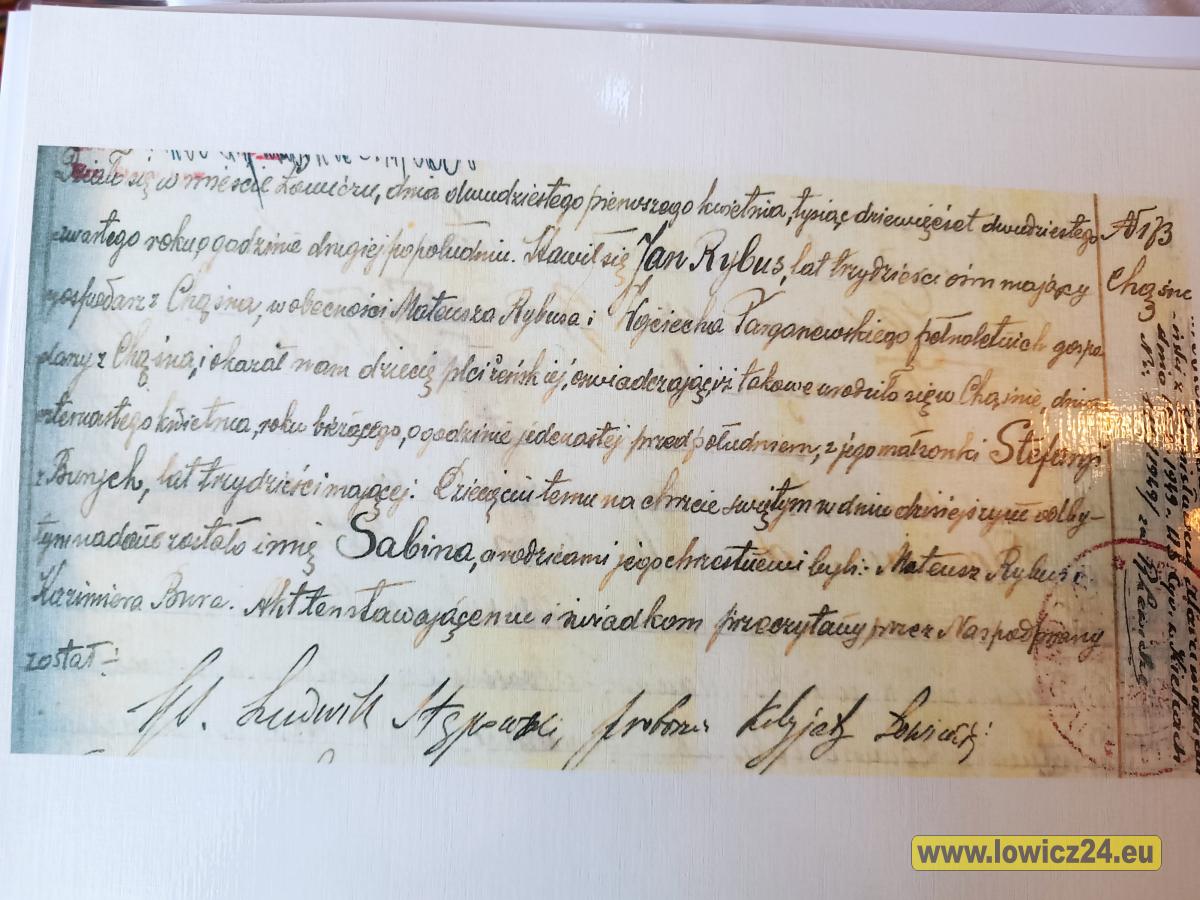 Działo się w mieście Łowiczu, dnia dwudziestego pierwszego kwietnia, tysiąc dziewięćset dwudziestego
czwartego roku, o godzinie drugiej popołudniu. Stawił się Jan Rybus, lat trzydzieści ośm mający
gospodarz z Chąśna, w obecności Mateusza Rybusa i Wojciecha Parganowskiego pełnoletnich gospo-
darzy z Chąśna, i okazał nam dziecię płci żeńskiej, oświadczając, iż takowe urodziło się w Chąśnie, dnia
czternastego kwietnia, roku bieżącego, o godzinie jedenastej przed południem, z jego małżonki Stefanji
z Burych, lat trzydzieści mającej. Dziecięciu temu na chrzcie świętym w dniu dzisiejszym odby-
tym nadane zostało imię Sabina, a rodzicami jego chrzestnemi byli: Mateusz Rybus i
Kazimiera Bura. Akt ten stawającemu i świadkom przeczytany przez Nas podpisany
został:
Ks. Ludwik Stępowski, proboszcz Kolegjaty Łowickiej
N 173
Chąśno
www.lowicz24.eu